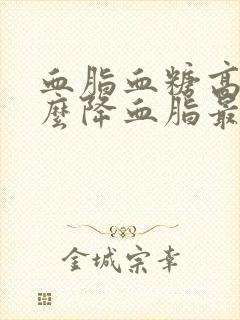 血脂血糖高
麽降血脂最
金城宗幸